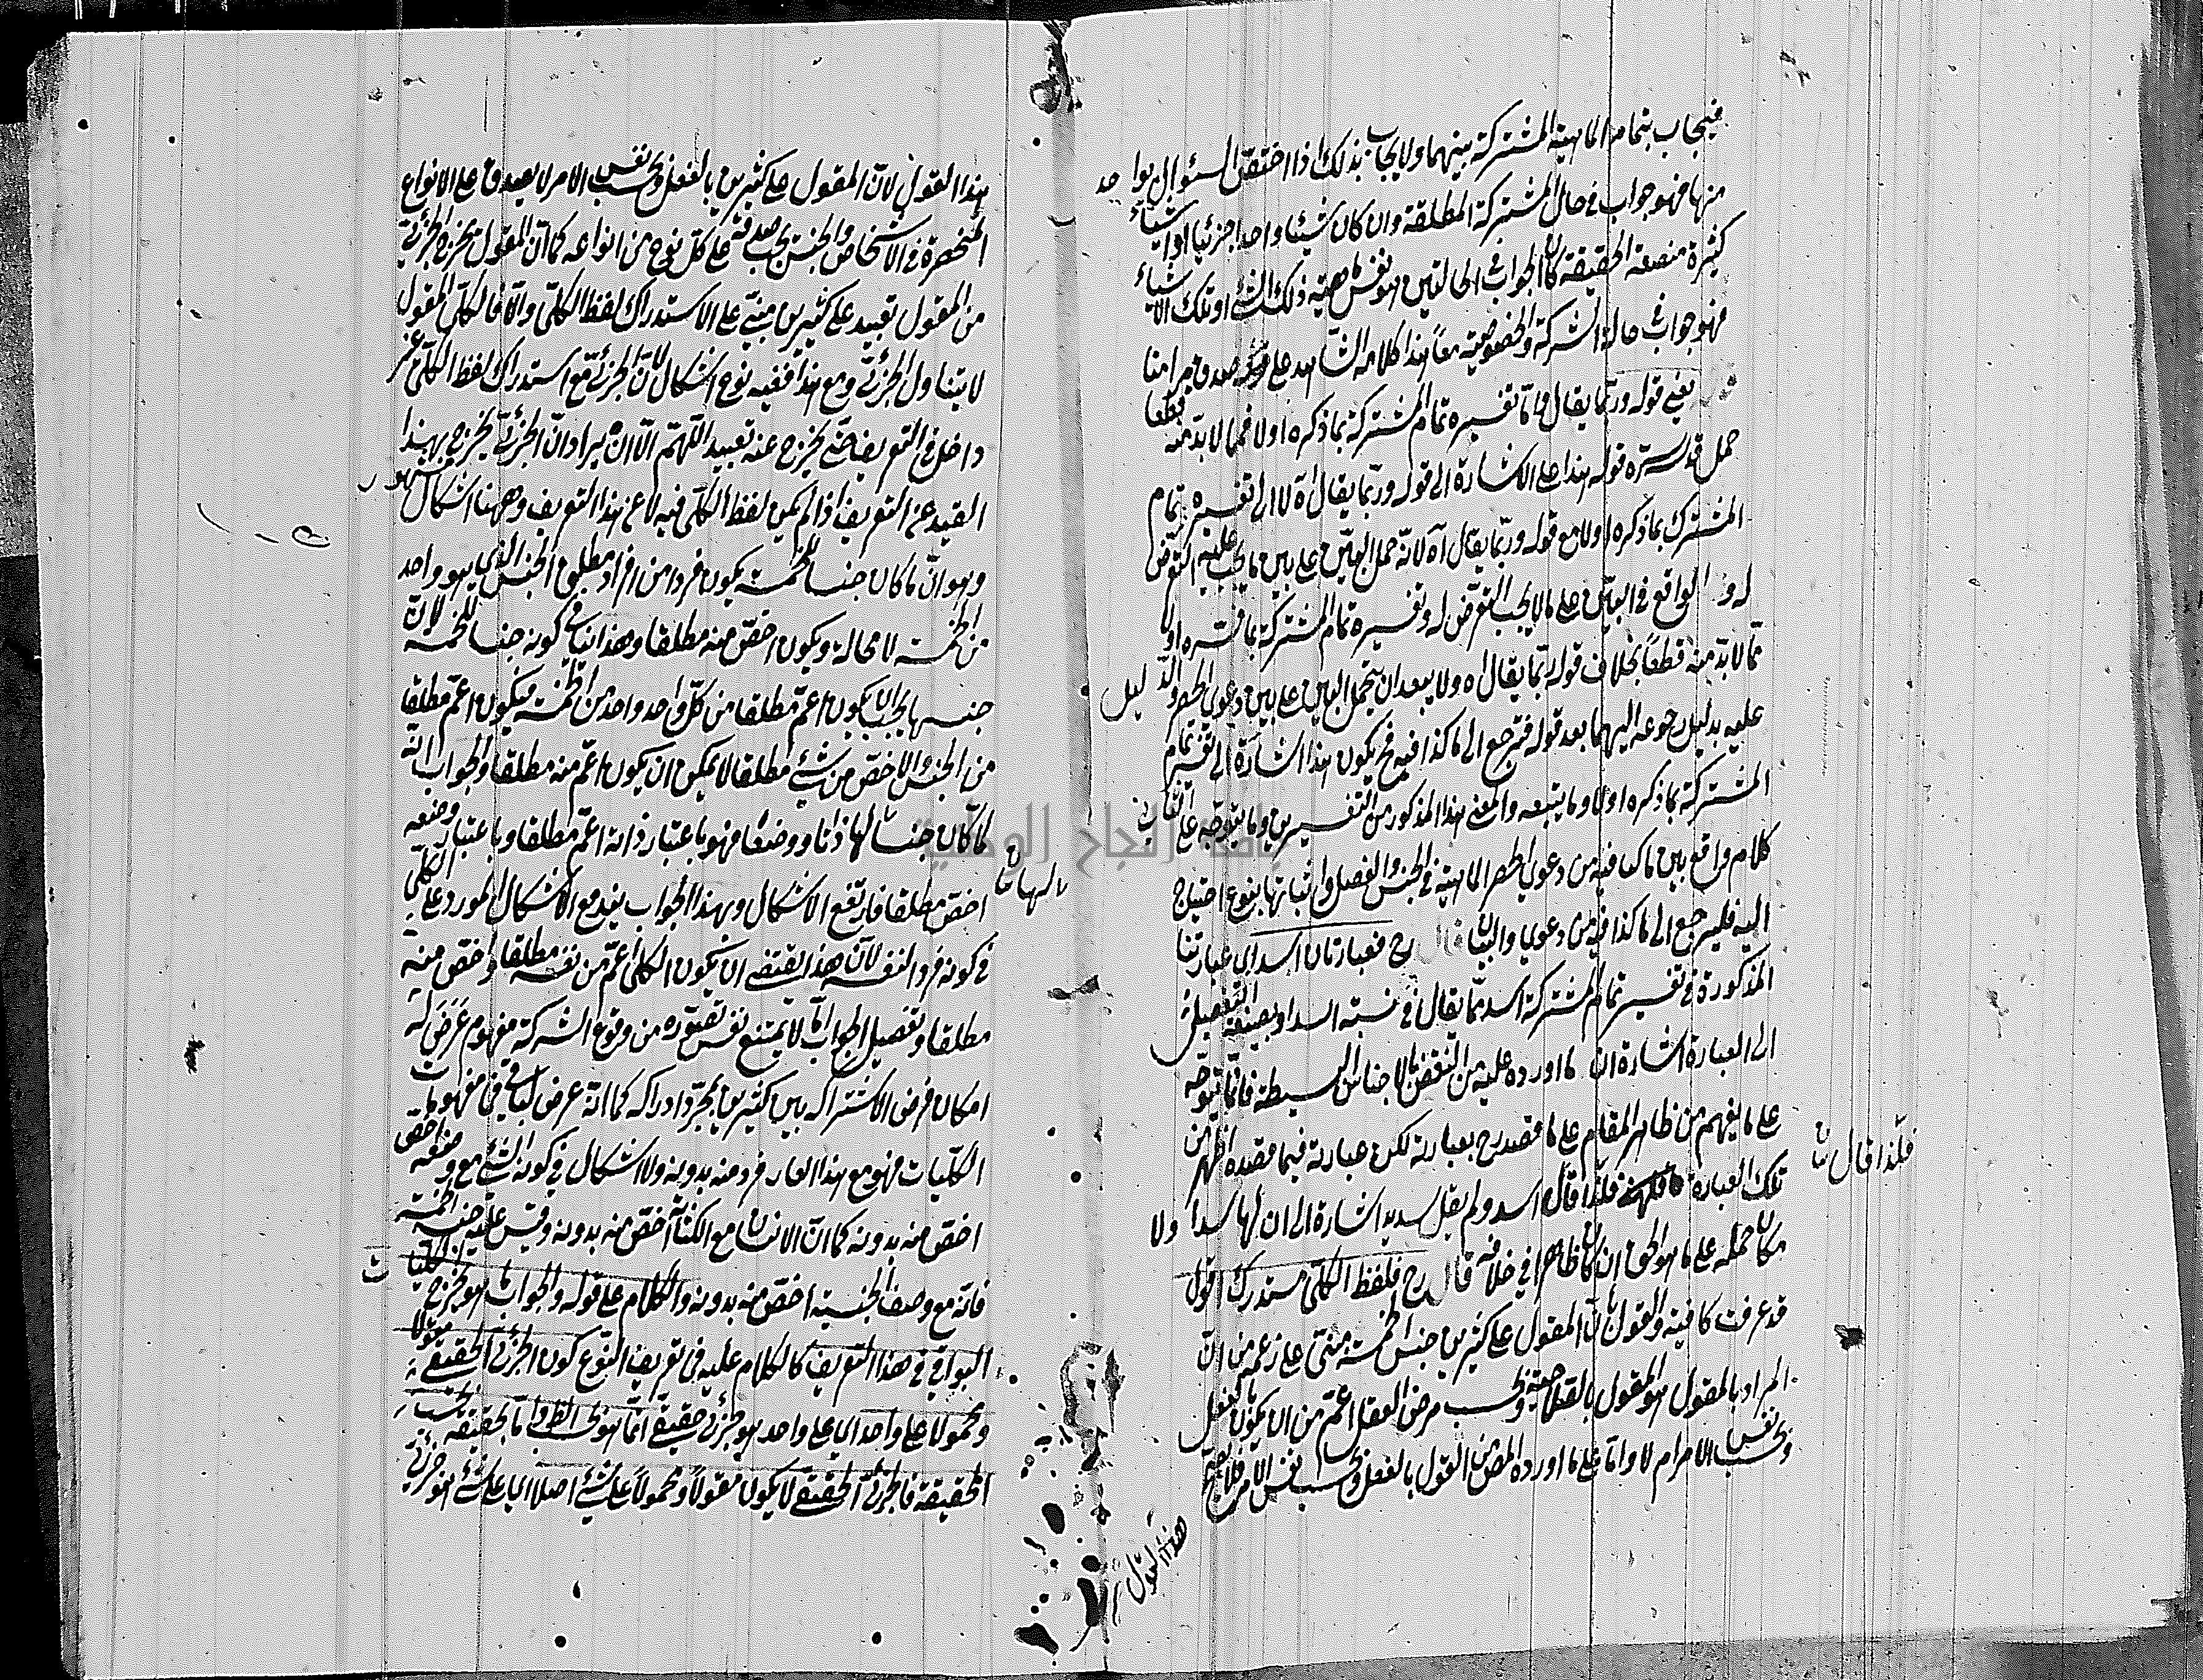 فيجاب بتمام الماهية المشتركة بينهما ولا يجاب بذلك اذا اختص السئوال بواحد
منها فهو جواب في حال الشركة المطلقة وان كان شيئا واحدا جزئيا او اشياء
كثيرة متفقة الحقيقة كان الجواب في الحالتين هو نفس ماهية ذلك الشئ او تلك الاشياء
فهو جواب في حالة الشركة والخصوصية معا هذا كلامه الشاهد على صدق مرامنا
يعني قوله وربما يقال واما تفسيره تمام المشتركة بما ذكره اولا فمما لا بد منه قطعا
حمل قدس سره قوله هذا على الاشارة الى قوله وربما يقال اه لا الى تفسيره تمام
المشترك بما ذكره اولا مع قوله وربما يقال اه لانه حمل البين على بين ما يجب عليه التعرض
له و الواقع في البين على ما لا يجب التعرض له وتفسيره تمام المشتركة بما فسره اولا
مما لا بد منه قطعا بخلاف قوله ربما يقال اه ولا يبعد ان يحمل البين على بين دعوى الحصر والدليل
عليه بدليل رجوعه اليهما بعد قوله فترجع الى ما كنا فيه فح يكون هذا اشارة الى تفسير تمام
المشتركة بما ذكره اولا وما يتبعه والمعنى هذا المذكور من التفسيرين وما يتوجه على الثاني
كلام واقع بين ما كنا فيه من دعوى حصر الماهية في الجنس والفصل واثباتها بنوع احتياج
اليه فليرجع الى ما كنا فيه من دعوى والبيان قال رح فعبارتنا اسد اى عبارتنا
المذكورة في تفسير تمام المشتركة اسد مما يقال في نسبته السداد بصيغة التفضيل
الى العبارة اشارة ان ما اورده عليه من النقض بالاجناس البسيطة فانما يتوجه
على ما يفهم من ظاهر المقام على ما قصد رح بعبارته لكن عبارته فيما قصده اظهر من
تلك العبارة فلذا قال اسد ولم يقل سديد اشارة الى ان لها سدادا ولا
مكان حمله على ما هو الحق ان كان ظاهرا في خلافه قال رح فلفظ الكلي مستدرك اقول
قد عرفت ما فيه والقول بان المقول على كثيرين جنس الخمسة مبني على زعمه من ان
المراد بالمقول هو المقول بالصلاحية وبحسب فرض العقل اعم من ان يكون بالفعل
وبحسب نفس الامر ام لا واما على ما اورده المص من القول بالفعل وبحسب نفس الامر فلا يصح
هذا القول
فلذا قال
هذا القول لان المقول على كثيرين بالفعل وبحسب نفس الامر لا يصدق على الانواع
المنحصرة في الاشخاص والجنس يجب صدقه على كل نوع من انواعه كما ان المقول يخرج الجزئي
من المقول تقييد على كثيرين مبني على الاستدراك لفظ الكلي والا فالكلي المقول
لا يتناول الجزئي ومع هذا ففيه نوع اشكال لان الجزئي مع استدراك لفظ الكلي غير
داخل في التعريف حتى يخرج عنه تقييد اللهم الا ان يراد ان الجزئي يخرج بهذا
القيد عن التعريف اذا لم يكن لفظ الكلي فيه لا عن هذا التعريف وههنا اشكال مشهور
وهو ان ما كان جنسا للخمسة يكون فردا من افراد مطلق الجنس الذي هو واحد
من الخمسة لا محالة ويكون اخص منه مطلقا وهذا ينافي كونه جنسا للخمسة لان
جنسها يجب ان يكون اعم مطلقا من كل واحد واحد من الخمسة فيكون اعم مطلقا
من الجنس والاخص من شئ مطلقا لا يمكن ان يكون اعم منه مطلقا والجواب انه
لما كان جنسا لها ذاتا ووصفا فهو باعتبار ذاته اعم مطلقا وباعتبار وصفه
اخص مطلقا فارتفع الاشكال وبهذا الجواب يندفع الاشكال المورد على الكلي
في كونه فردا لنفسه لان هذا يقتضي ان يكون الكلي اعم من نفسه مطلقا واخص منه
مطلقا وتفصيل الجواب ان ما لا يمتنع نفس تصوره من وقوع الشركة مفهوم عرض له
امكان فرض الاشتراك بين كثيرين بمجرد ادراكه كما انه عرض لباقي مفهومات
الكليات فهو مع هذا العارض فرد منه بدونه ولا اشكال في كون الشئ مع وصفه اخص
اخص منه بدونه كما ان الانسان مع الكتابة اخص منه بدونه وقس عليه جنسية الخمسة
فانه مع وصف الجنسية اخص منه بدونه والكلام على قوله والجواب ما هو يخرج الكليات
البواقي في هذا التعريف كالكلام عليه في تعريف النوع كون الجزئي الحقيقي مقولا
ومحمولا على واحد اى على واحد هو جزئي حقيقي انما هو بحسب الظ واما بحسب الحقيقة
الحقيقة فالجزئي الحقيقي لا يكون مقولا ومحمولا على شئ اصلا اى على شئ هو جزئي